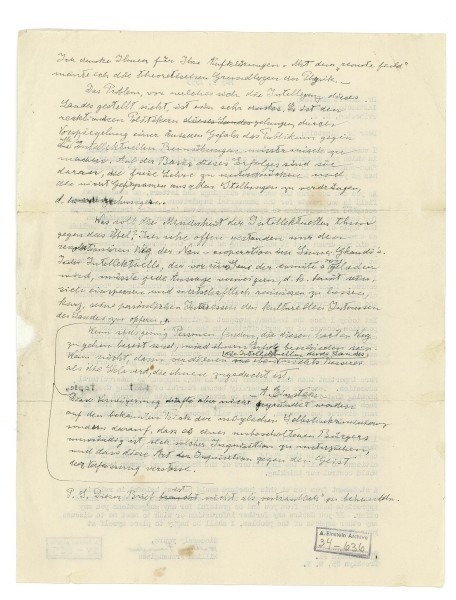 Ich danke Ihnen für Ihre Aufklärungen. Mit dem "remote field"
meinte ich die theoretischen Grundlagen der Physik. —
Das Problem, vor welches sich die Intelligenz dieses
Landes gestellt sieht, ist ein sehr ernstes. Es ist den
reaktionären Politikern gelungen durch
Vorspiegelung einer äusseren Gefahr das Publikum gegen
alle intellektuellen Bemühungen misstrauisch zu
machen. Auf der Basis dieses Erfolges sind sie
daran, die freie Lehre zu unterdrücken und
die nicht Gefügsamen aus allen Stellungen zu verdrängen,
d. h.
Was soll die Minderheit der Intellektuellen thun
gegen dies Übel? Ich sehe offen gestanden nur den
revolutionären Weg der Non-cooperation im Sinne Ghandi's.
Jeder Intellektuelle, der vor eines der Comités geladen
wird, müsste jede Aussage verweigern, d. h. bereit sein
sich einsperren und wirtschaftlich ruinieren zu lassen,
kurz, seine persönlichen Interessen den kulturellen Interessen
des Landes zu opfern.
Wenn sich genug Personen finden, die diesen harten Weg
zu gehen bereit sind, wird ihnen Erfolg beschieden sein.
Wenn nicht, dann verdienen die Intellektuellen dieses Landes nichts Besseres
als die Sklaverei, die ihnen zugedacht ist.
A. Einstein
Diese Verweigerung dürfte aber nicht gegründet werden
auf den bekannten Trick der möglichen Selbstinkriminierung
sondern darauf, dass es eines unbescholtenen Bürgers
unwürdig ist, sich solcher Inquisition zu unterziehen,
und dass diese Art der Inquisition gegen den Geist
der Verfassung verstösst.
P.S. Dieser Brief ist nicht als "vertraulich" zu behandeln.
A. Einstein Archive
34-636